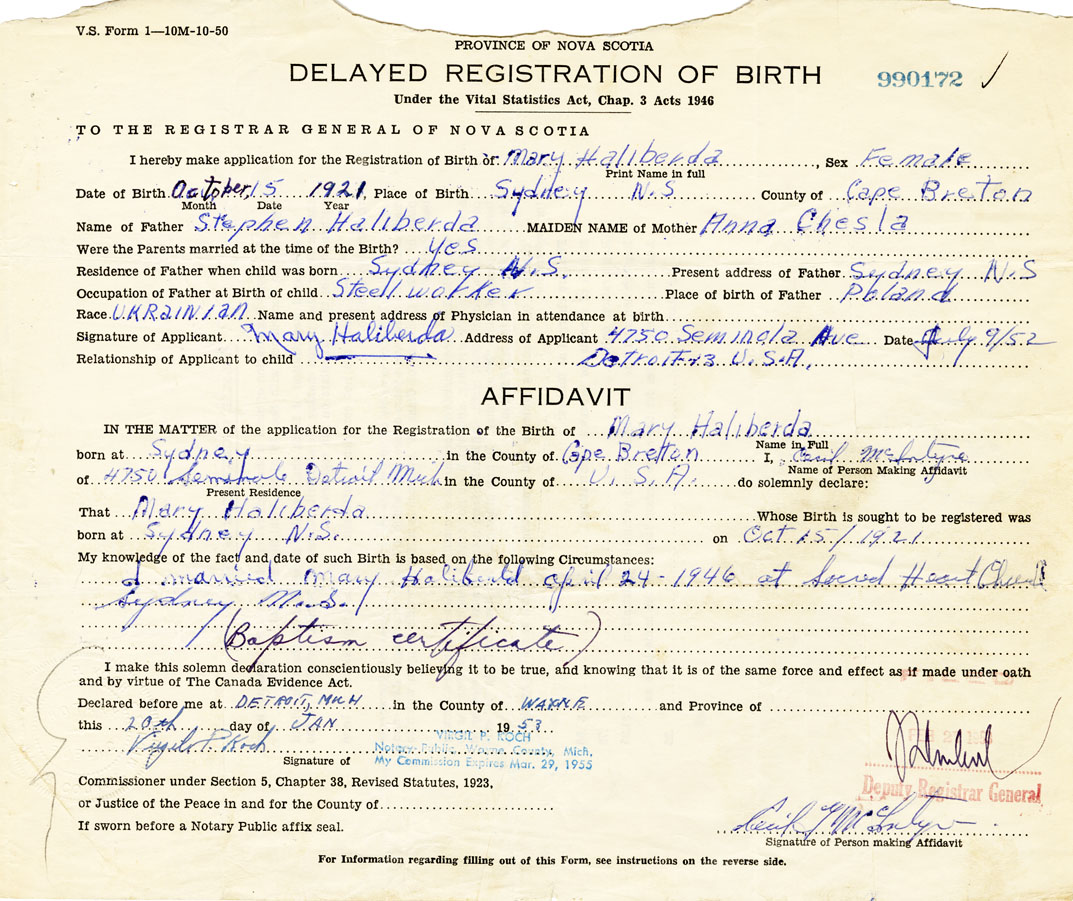 V.S. Form 1—10M-10-50
PROVINCE OF NOVA SCOTIA
DELAYED REGISTRATION OF BIRTH
990172
Under the Vital Statistics Act, Chap. 3 Acts 1946
TO THE REGISTRAR GENERAL OF NOVA SCOTIA
I hereby make application for the Registration of Birth of Mary Haliberda, Sex Female
Print Name in full
Date of Birth October, 15 1921, Place of Birth Sydney N.S County of Cape Breton
Month Date Year
Name of Father Stephen Haliberda MAIDEN NAME of Mother Anna Chesla
Were the Parents married at the time of the Birth? yes
Residence of Father when child was born Sydney N.S. Present address of Father Sydney N.S
Occupation of Father at Birth of child Steel worker Place of birth of Father Poland
Race UKRAINIAN Name and present address of Physician in attendance at birth
Signature of Applicant Mary Haliberda Address of Applicant 4750 Seminola Ave Date July 9/52
Relationship of Applicant to child Detroit 13 U.S.A.
AFFIDAVIT
IN THE MATTER of the application for the Registration of the Birth of Mary Haliberda
Name in Full
born at Sydney in the County of Cape Bretton I, Cecil McIntyre
Name of Person Making Affidavit
of 4750 Detroit Mich in the County of U.S.A. do solemnly declare:
Present Residence
That Mary Haliberda Whose Birth is sought to be registered was
born at Sydney N.S. on Oct 15/1921
My knowledge of the fact and date of such Birth is based on the following Circumstances:
I married Mary april 24-1946 at Heart
Sydney N.S.
(Baptism certificate)
I make this solemn declaration conscientiously believing it to be true, and knowing that it is of the same force and effect as if made under oath
and by virtue of The Canada Evidence Act.
Declared before me at DETROIT, MICH in the County of WAYNE and Province of
this 20th day of JAN 1953
Virgil P. Koch
VIRGIL P. KOCH
Notary Public, Wayne County, Mich.
Signature of My Commission Expires Mar. 29, 1955
Commissioner under Section 5, Chapter 38, Revised Statutes, 1923,
Deputy Registrar General
or Justice of the Peace in and for the County of
If sworn before a Notary Public affix seal.
Cecil McIntyre
Signature of Person making Affidavit
For Information regarding filling out of this Form, see instructions on the reverse side.